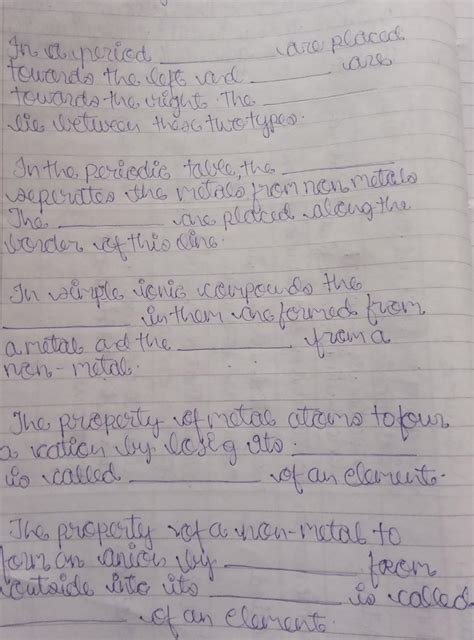 In a period __________ are placed
towards the left and ________ are
towards the right. The __________
lie between these two types.
In the periodic table, the ___________
seperates the metals from non metals
The __________ are placed along the
border of this line.
In simple ionic compou ds the
__________ in them are formed from
a metal ad the __________ from a
non-metal.
The property of metal atoms to four
a cation by losig its __________
is called __________ of an element.
The property of a non-metal to
form an anion by __________ from
outside into its __________ is called
__________ of an element.